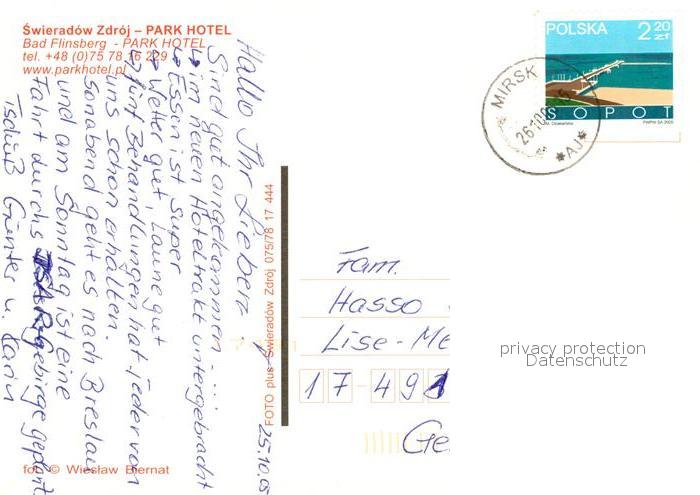 Świeradów Zdrój – PARK HOTEL
Bad Flinsberg - PARK HOTEL
tel. +48 (0)75 78 16 229
www.parkhotel.pl
Hallo Ihr Lieben
Sind gut angekommen - ...
im neuen Hoteltrakt untergebracht
Essen ist super
Wetter gut, Laune gut
fünf Behandlungen hat jeder von
uns schon erhalten.
Sonabend geht es nach Breslau
und am Sonntag ist eine
Fahrt durchs gebirge geplant.
Tschüß Günter u. Karin
25.10.05
foto © Wiesław Biernat
FOTO plus Świeradów Zdrój 075/78 17 444
POLSKA 2 20 zł
SOPOT
PWPW SA 2005
MIRSK
26 10
*AJ*
Fam.
Hasso
Lise-Me
17-491
Ge
privacy protection
Datenschutz